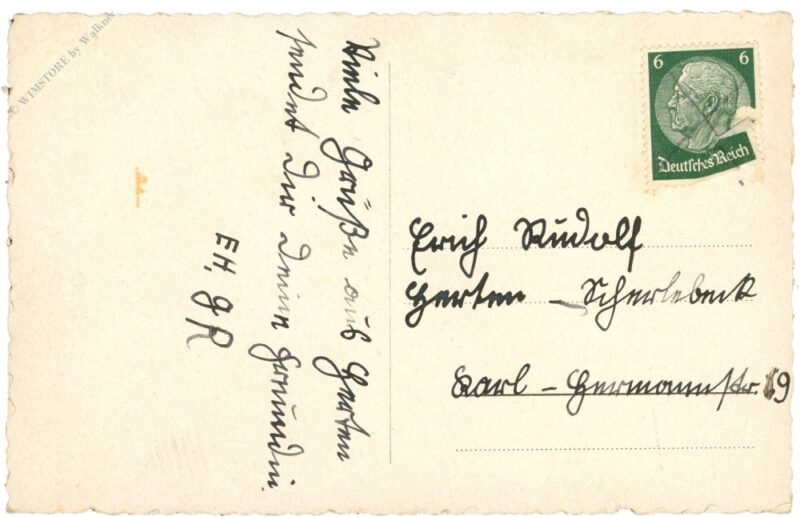 © WIMSTORE by Walkner
Viele Grüße aus Herten
sendet dir deine Freundin
EH, gR
6 6
Deutsches Reich
Erich Rudolf
Herten - Scherlebeck
Karl - Hermannstr. 9